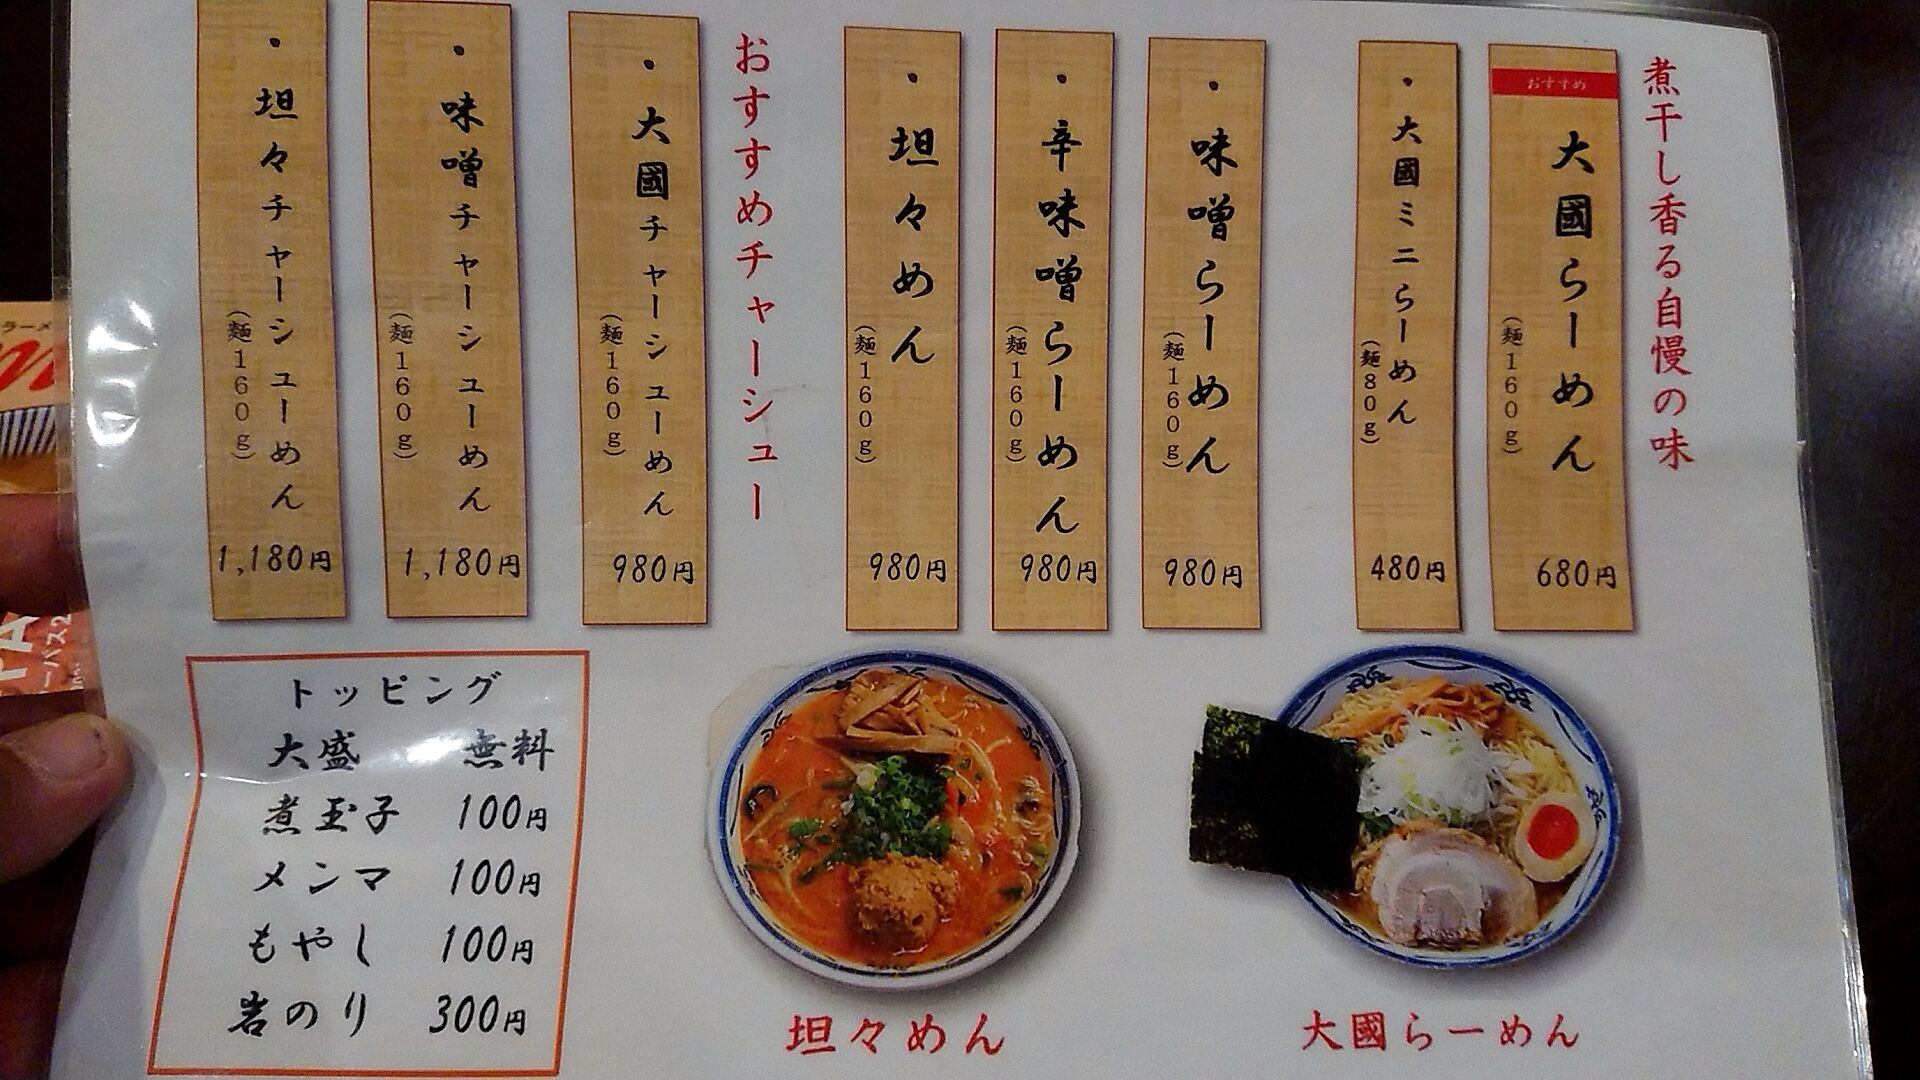 煮干し香る自慢の味
おすすめ
大國らーめん
(麺160g)
680円
・大國ミニらーめん
(麺80g)
480円
・味噌らーめん
(麺160g)
980円
・辛味噌らーめん
(麺160g)
980円
・坦々めん
(麺160g)
980円
おすすめチャーシュー
・大國チャーシューめん
(麺160g)
980円
・味噌チャーシューめん
(麺160g)
1,180円
・坦々チャーシューめん
(麺160g)
1,180円
トッピング
大盛 無料
煮玉子 100円
メンマ 100円
もやし 100円
岩のり 300円
坦々めん
大國らーめん
ラーメ